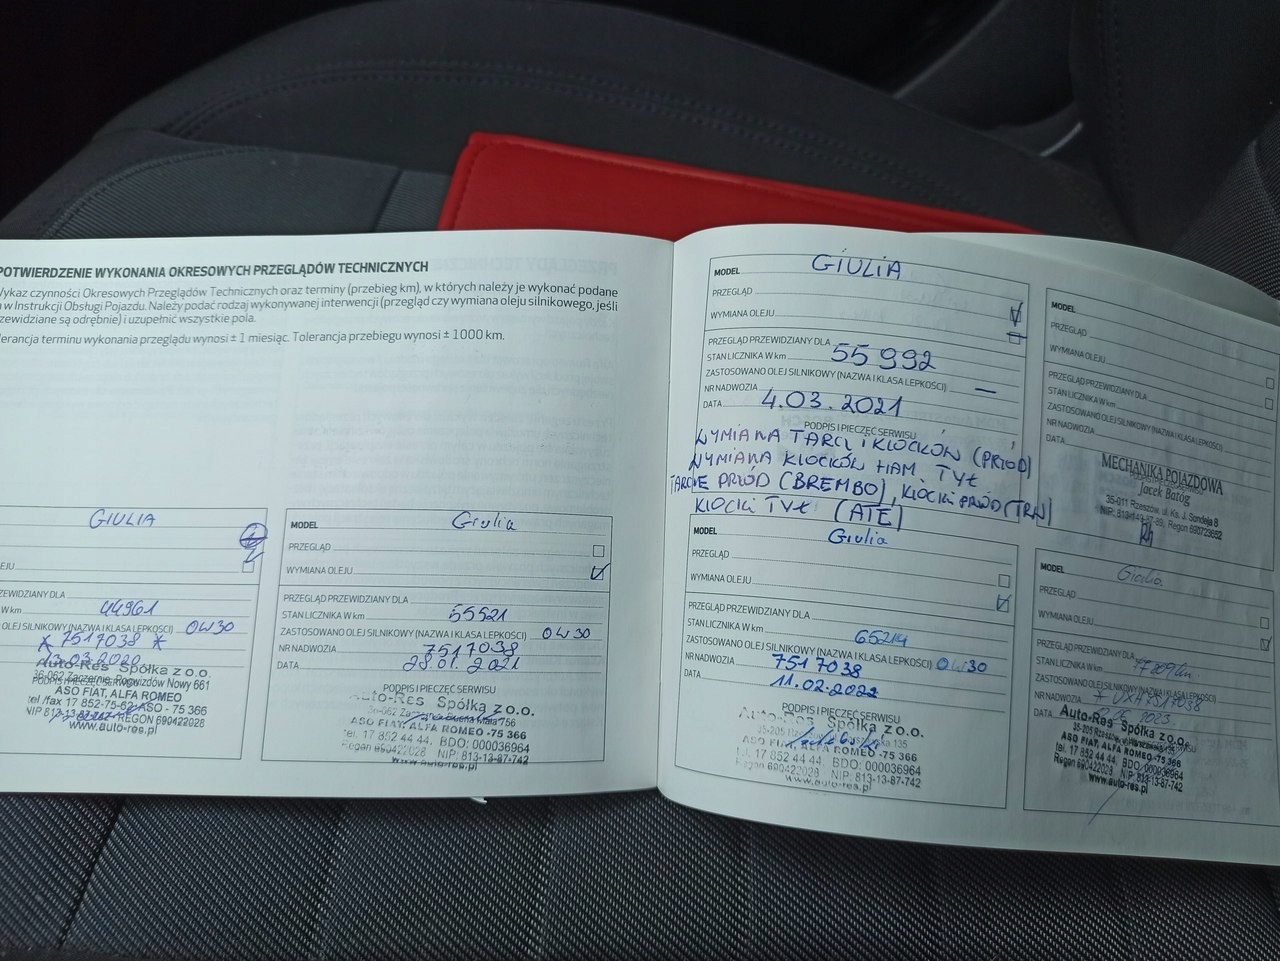 POTWIERDZENIE WYKONANIA OKRESOWYCH PRZEGLĄDÓW TECHNICZNYCH
Wykaz czynności Okresowych Przeglądów Technicznych oraz terminy (przebieg km), w których należy je wykonać podane
w Instrukcji Obsługi Pojazdu. Należy podać rodzaj wykonywanej interwencji (przegląd czy wymiana oleju silnikowego, jeśli
zewidziane są odrębnie) i uzupełnić wszystkie pola.
lerancja terminu wykonania przeglądu wynosi ± 1 miesiąc. Tolerancja przebiegu wynosi ± 1000 km.
GIULIA
EJU
ZEWIDZIANY DLA
W km 44961
OLEJ SILNIKOWY (NAZWA I KLASA LEPKOŚCI) 0W30
* 7517038 *
13.03.2020
Auto-Res Spółka z o.o.
36-062 Zaczernie, Pogwizdów Nowy 661
PODPIS I PIECZĘĆ SERWISU
ASO FIAT, ALFA ROMEO
tel /fax 17 852-75-62 ASO - 75 366
NIP 813-13-87-742 REGON 690422028
www.auto-res.pl
MODEL Giulia
PRZEGLĄD
WYMIANA OLEJU
PRZEGLĄD PRZEWIDZIANY DLA
STAN LICZNIKA W km 55521
ZASTOSOWANO OLEJ SILNIKOWY (NAZWA I KLASA LEPKOŚCI) 0W30
NR NADWOZIA 7517038
DATA 28.01.2021
PODPIS I PIECZĘĆ SERWISU
Auto-Res Spółka z o.o.
ASO FIAT, ALFA ROMEO -75 366
tel. 17 852 44 44, BDO: 000036964
Regon 690422028 NIP: 813-13-87-742
www.auto-res.pl
MODEL GIULIA
PRZEGLĄD
WYMIANA OLEJU
PRZEGLĄD PRZEWIDZIANY DLA
STAN LICZNIKA W km 55992
ZASTOSOWANO OLEJ SILNIKOWY (NAZWA I KLASA LEPKOŚCI) —
NR NADWOZIA
DATA 4.03.2021
PODPIS I PIECZĘĆ SERWISU
WYMIANA TARCZ I KLOCKÓW (PRZÓD)
WYMIANA KLOCKÓW HAM. TYŁ
TARCZE PRZÓD (BREMBO), KLOCKI PRZÓD (TRW)
KLOCKI TYŁ (ATE)
Giulia
PRZEGLĄD
WYMIANA OLEJU
PRZEGLĄD PRZEWIDZIANY DLA
STAN LICZNIKA W km 65214
ZASTOSOWANO OLEJ SILNIKOWY (NAZWA I KLASA LEPKOŚCI) 0W30
NR NADWOZIA 7517038
DATA 11.02.2022
PODPIS I PIECZĘĆ SERWISU
Auto-Res Spółka z o.o.
ASO FIAT, ALFA ROMEO -75 366
tel. 17 852 44 44, BDO: 000036964
Regon 690422028 NIP: 813-13-87-742
www.auto-res.pl
MODEL
PRZEGLĄD
WYMIANA OLEJU
PRZEGLĄD PRZEWIDZIANY DLA
STAN LICZNIKA W km
ZASTOSOWANO OLEJ SILNIKOWY (NAZWA I KLASA LEPKOŚCI)
NR NADWOZIA
DATA
MECHANIKA POJAZDOWA
Jacek Batóg
35-011 Rzeszów, ul. Ks. J. Sondeja 8
Regon 690723652
MODEL Giulia
PRZEGLĄD
WYMIANA OLEJU
PRZEGLĄD PRZEWIDZIANY DLA
STAN LICZNIKA W km
ZASTOSOWANO OLEJ SILNIKOWY (NAZWA I KLASA LEPKOŚCI)
NR NADWOZIA
DATA
Auto-Res Spółka z o.o.
ASO FIAT, ALFA ROMEO -75 366
tel. 17 852 44 44, BDO: 000036964
Regon 690422028 NIP: 813-13-87-742
www.auto-res.pl